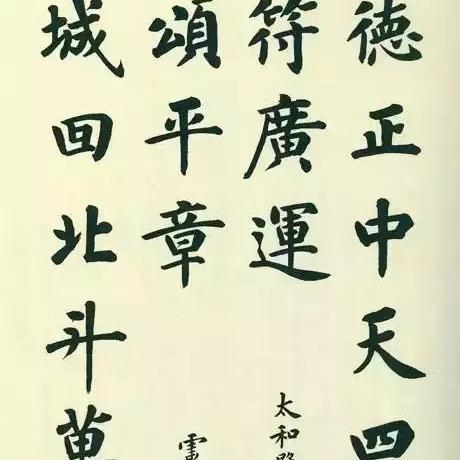 德正中天四
符廣運
太和
頌平章
城回北斗萬